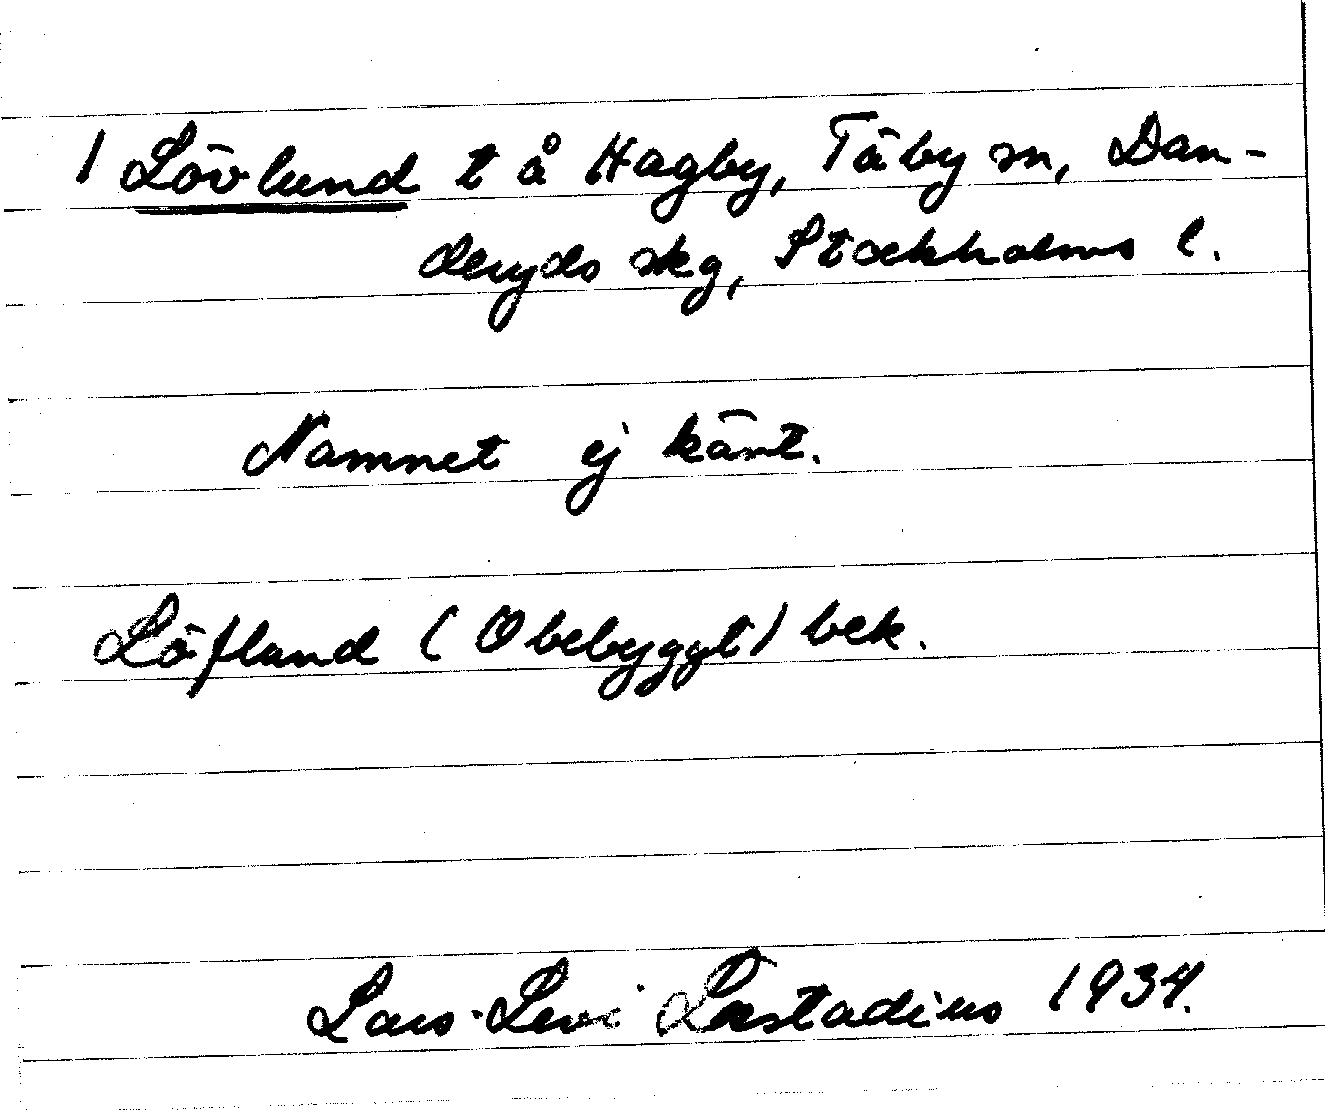 1 Lövlund t å Hagby, Täby sn, Dan-
deryds skg, Stockholms l.
Namnet ej känt.
Löfland (Obebyggt) bek.
Lars-Levi Læstadius 1934.